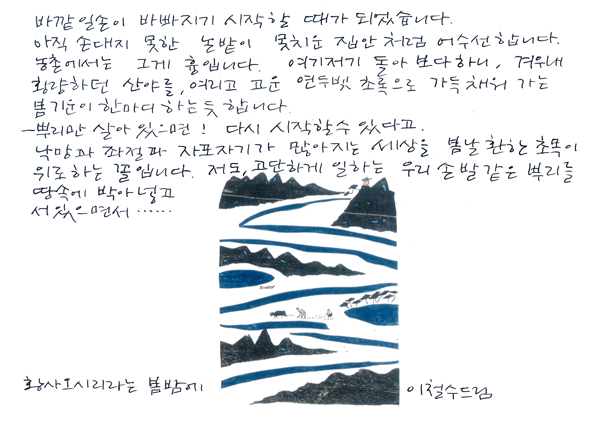 바깥일손이 바빠지기 시작할 때가 되었습니다.
아직 손대지 못한 논밭이 못치운 집안처럼 어수선합니다.
농촌에서는 그게 흉입니다. 여기저기 돌아 보다하니, 겨우내
황량하던 산야를, 여리고 고운 연두빛 초록으로 가득 채워 가는
봄기운이 한마디 하는듯 합니다.
-뿌리만 살아 있으면! 다시 시작할수 있다고.
낙망과 좌절과 자포자기가 많아지는 세상을 봄날 환한 초목이
위로하는 꼴입니다. 저도, 고단하게 일하는 우리 손발 같은 뿌리를
땅속에 박아 넣고
서있으면서 ......
황사 오시리라는 봄밤에
이철수드림